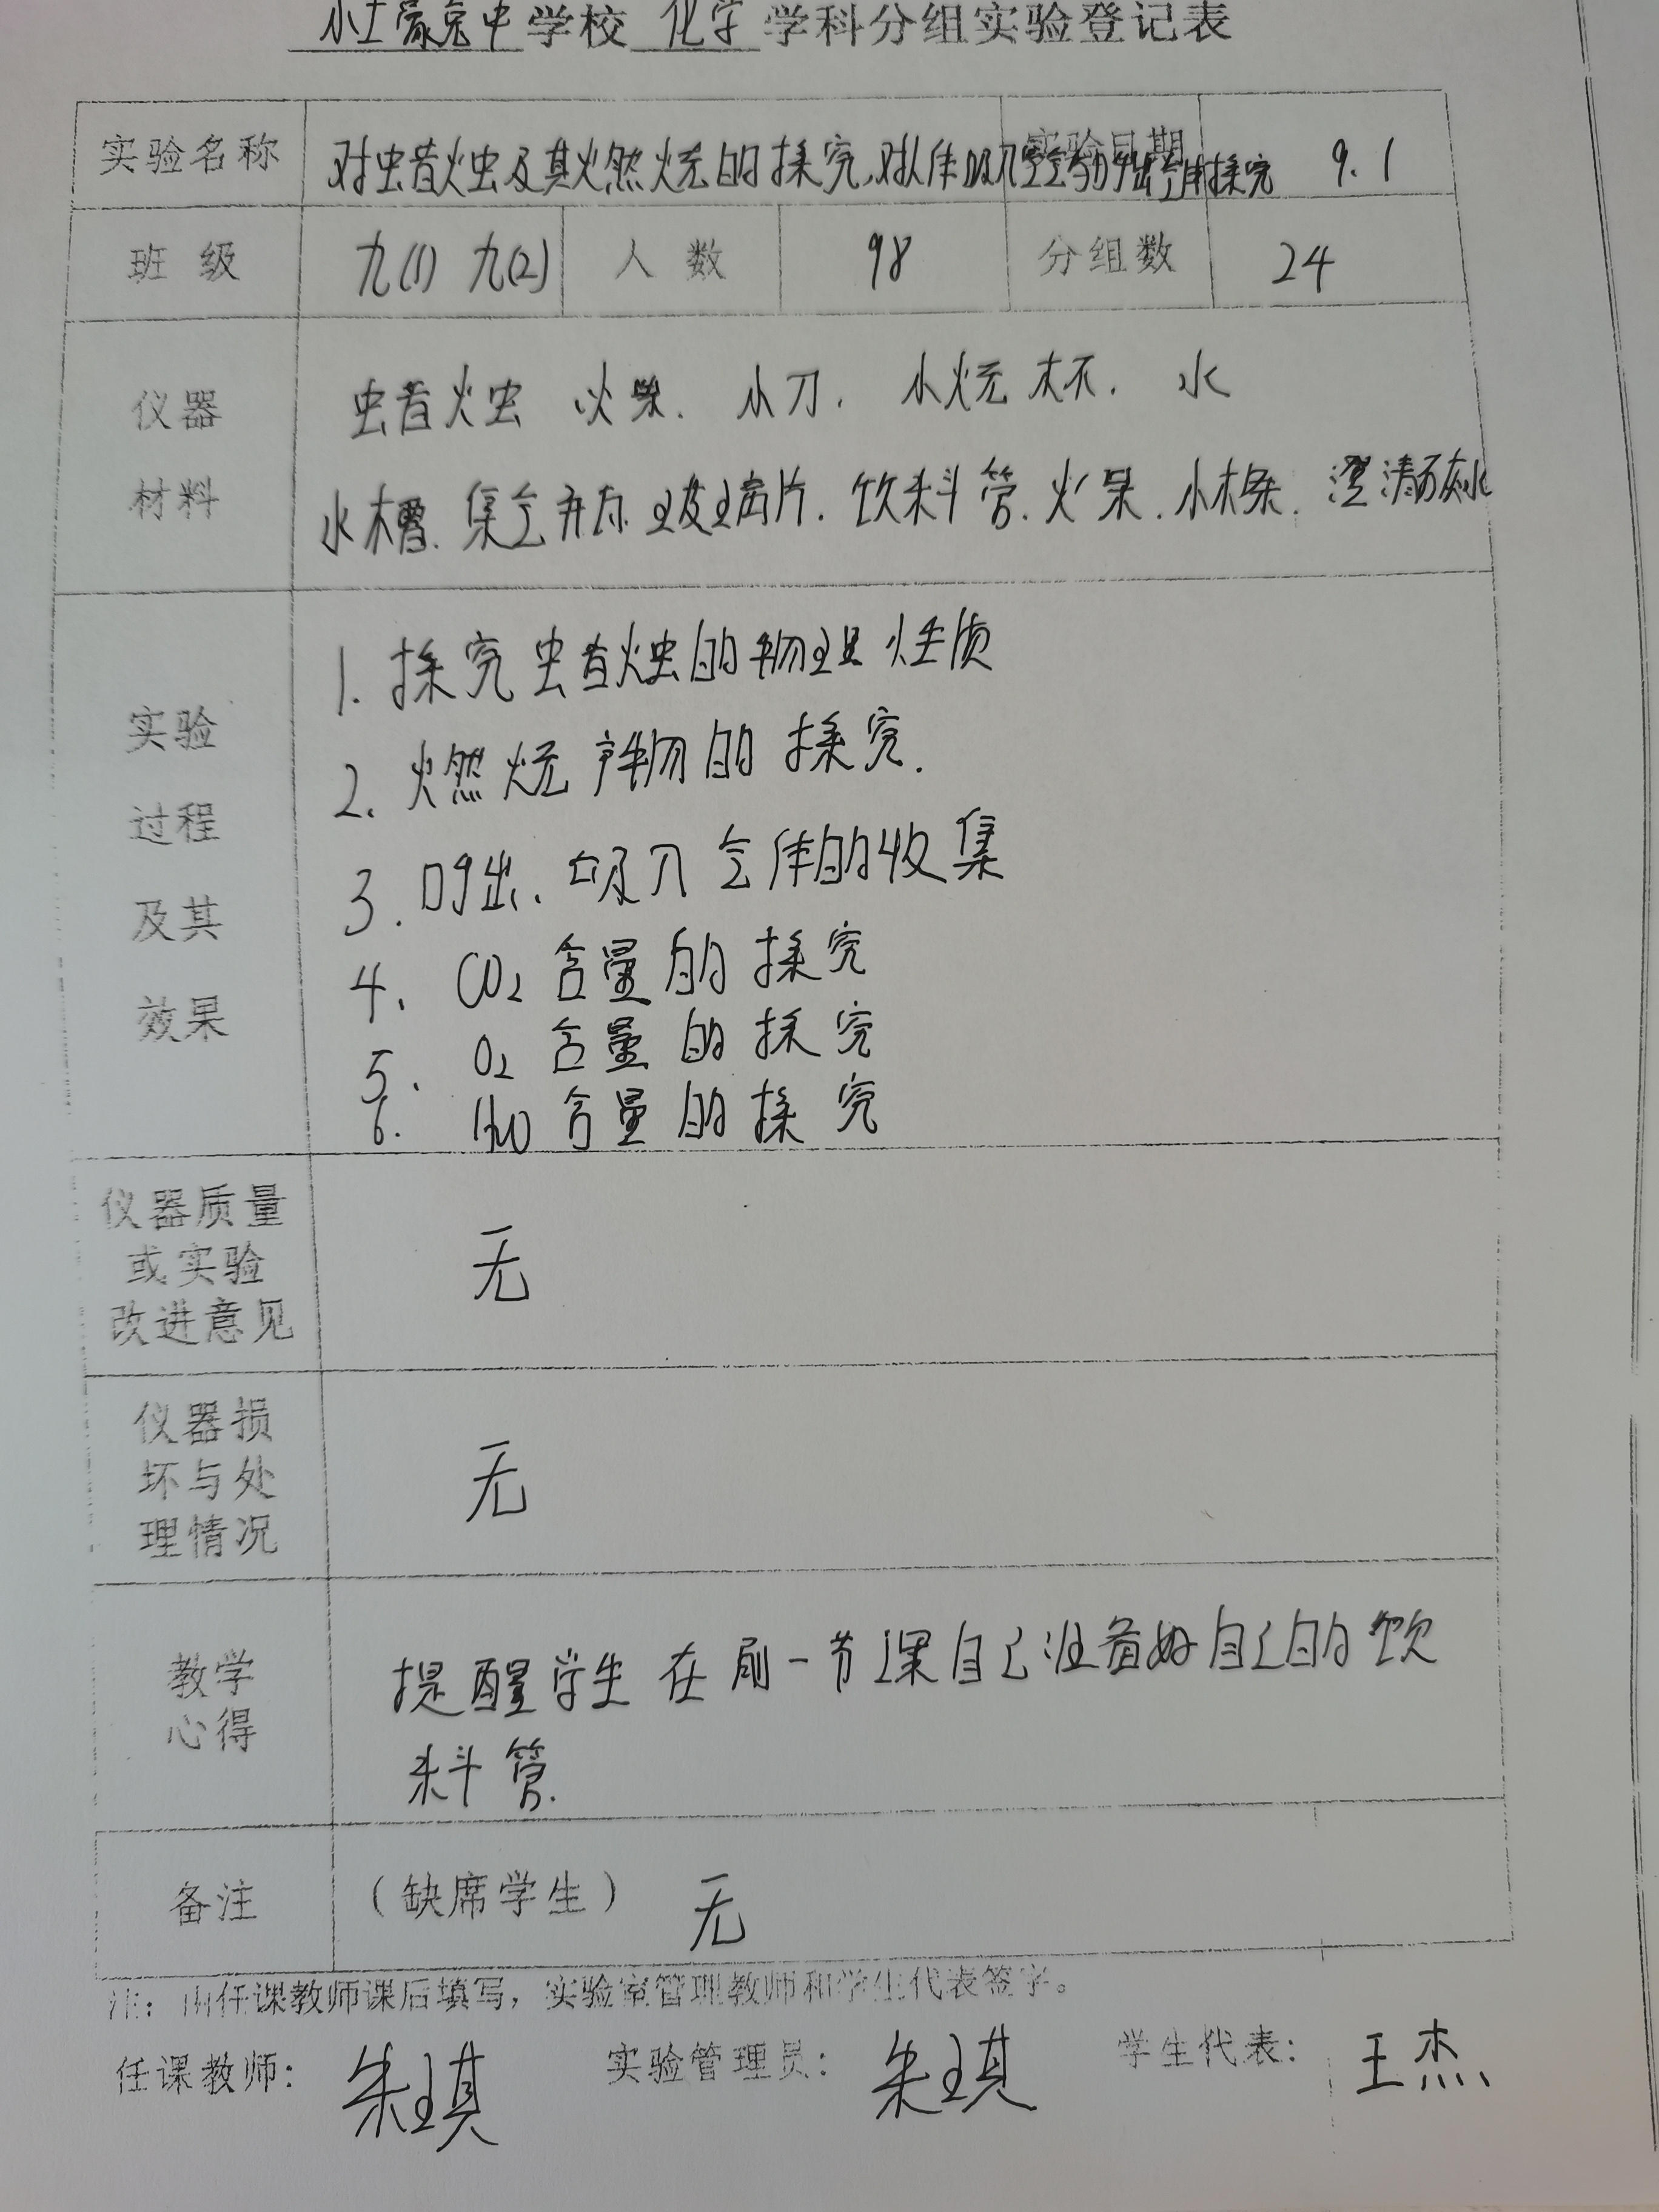 小土豪兔中学校 化学 学科分组实验登记表
实验名称 对蜡烛及其燃烧的探究,对人体吸入空气与呼出气体探究 实验日期 9.1
班 级 九(1) 九(2) 人 数 98 分组数 24
仪器 蜡烛 火柴. 小刀. 小烧杯. 水
材料 水槽. 集气瓶. 玻璃片. 饮料管. 火柴. 小木条. 澄清石灰水
1. 探究蜡烛的物理性质
实验
2. 燃烧产物的探究.
过程
3. 呼出、吸入气体的收集
及其
4. CO₂ 含量的探究
效果
5. O₂ 含量的探究
6. H₂O 含量的探究
仪器质量
或实验 无
改进意见
仪器损
坏与处 无
理情况
教学 提醒学生在前一节课自己准备好自己的饮
心得
料管.
备注 (缺席学生) 无
注:由任课教师课后填写,实验室管理教师和学生代表签字。
任课教师: 朱琪 实验管理员: 朱琪 学生代表: 王杰